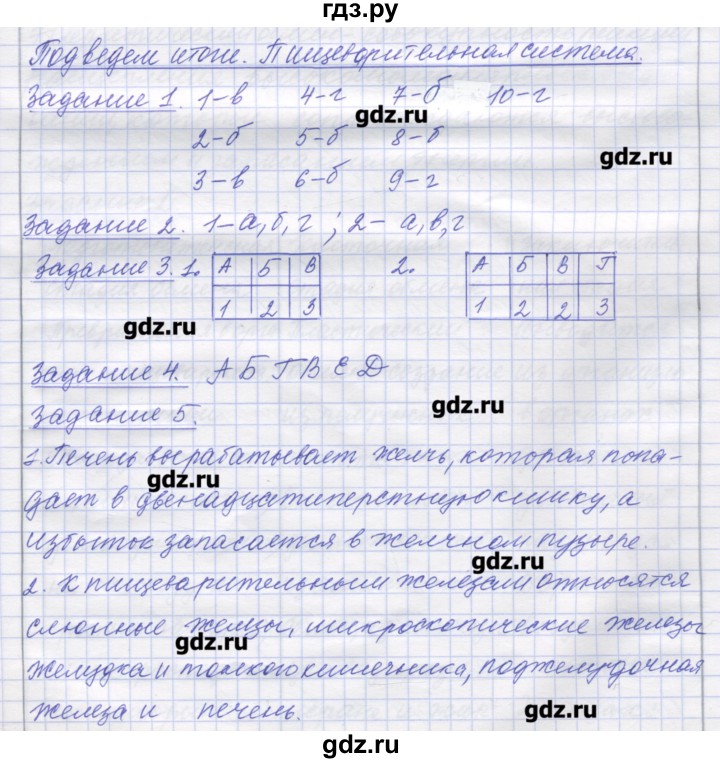 гдз.ру
Подведем итоги. Пищеварительная система.
Задание 1. 1-в 4-г 7-б 10-г
gdz.ru
2-б 5-б 8-б
gdz.ru
3-в 6-б 9-г
Задание 2. 1-а,б,г ; 2- а,в,г
Задание 3. 1. А Б В 2. А Б В Г
1 2 3 1 2 2 3
gdz.ru
Задание 4. А Б Г В Е Д
gdz.ru
Задание 5.
1. Печень вырабатывает желчь, которая попа-
gdz.ru
дает в двенадцатиперстную кишку, а
избыток запасается в желчном пузыре.
gdz.ru
2. К пищеварительным железам относятся
слюнные железы, микроскопические железы
gdz.ru
желудка и тонкого кишечника, поджелудочная
железа и печень.
gdz.ru
gdz.ru